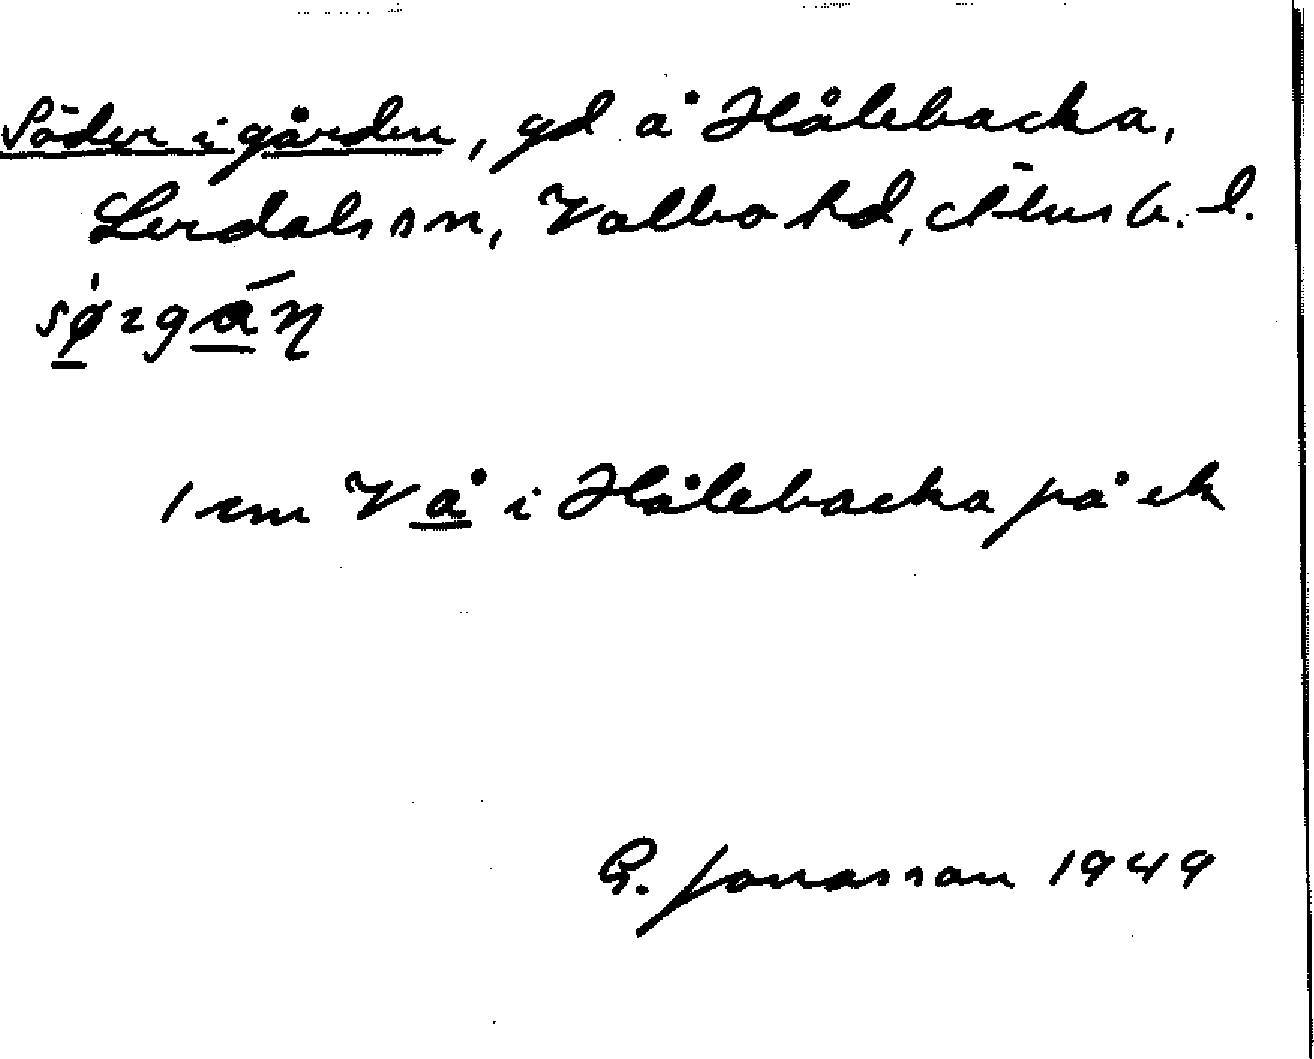 Söder i gården, gd å Hålebacka,
Lerdals sn, Valbo hd, Älvsb. l.
1 cm V å i Hålebacka på ek
G. Jonasson 1949